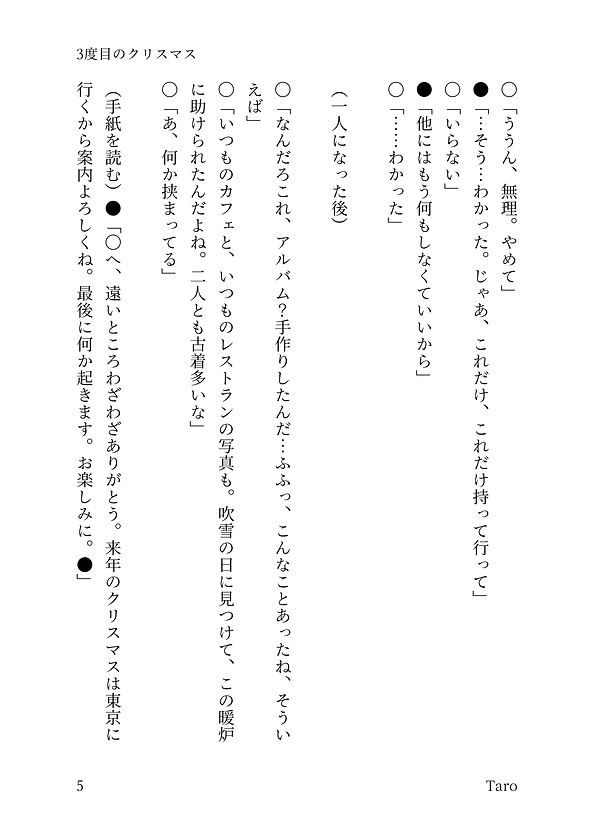 3度目のクリスマス
○「ううん、無理。やめて」
●「…そう…わかった。じゃあ、これだけ、これだけ持って行って」
○「いらない」
●「他にはもう何もしなくていいから」
○「……わかった」
(一人になった後)
○「なんだろこれ、アルバム？手作りしたんだ…ふふっ、こんなことあったね、そうい
えば」
○「いつものカフェと、いつものレストランの写真も。吹雪の日に見つけて、この暖炉
に助けられたんだよね。二人とも古着多いな」
○「あ、何か挟まってる」
(手紙を読む)●「○へ、遠いところわざわざありがとう。来年のクリスマスは東京に
行くから案内よろしくね。最後に何か起きます。お楽しみに。●」
5
Taro